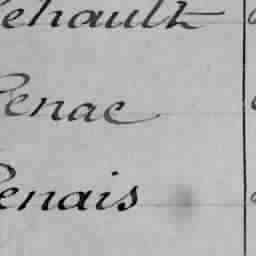 ehault
enac
enais